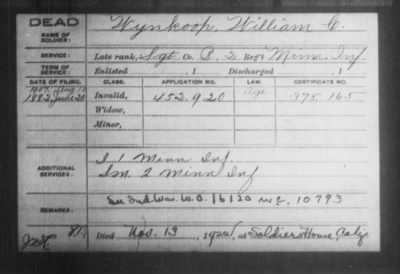 DEAD
Wynkoop, William C.
NAME OF
SOLDIER:
SERVICE:
Late rank, Sgt Co. B, 2 Reg't Minn. Inf
TERM OF
SERVICE:
Enlisted , 1 Discharged , 1
DATE OF FILING. CLASS. APPLICATION NO. LAW. CERTIFICATE NO.
1907. Aug. Age
1882, June 20 Invalid, 452.920 375.165
Widow,
Minor,
ADDITIONAL
SERVICES:
I 1 Minn Inf.
Sm. 2 Minn Inf
REMARKS:
See Ind. War. W.O. 16120 10793
Died Nov. 13, 1920, at Soldiers Home, Calif